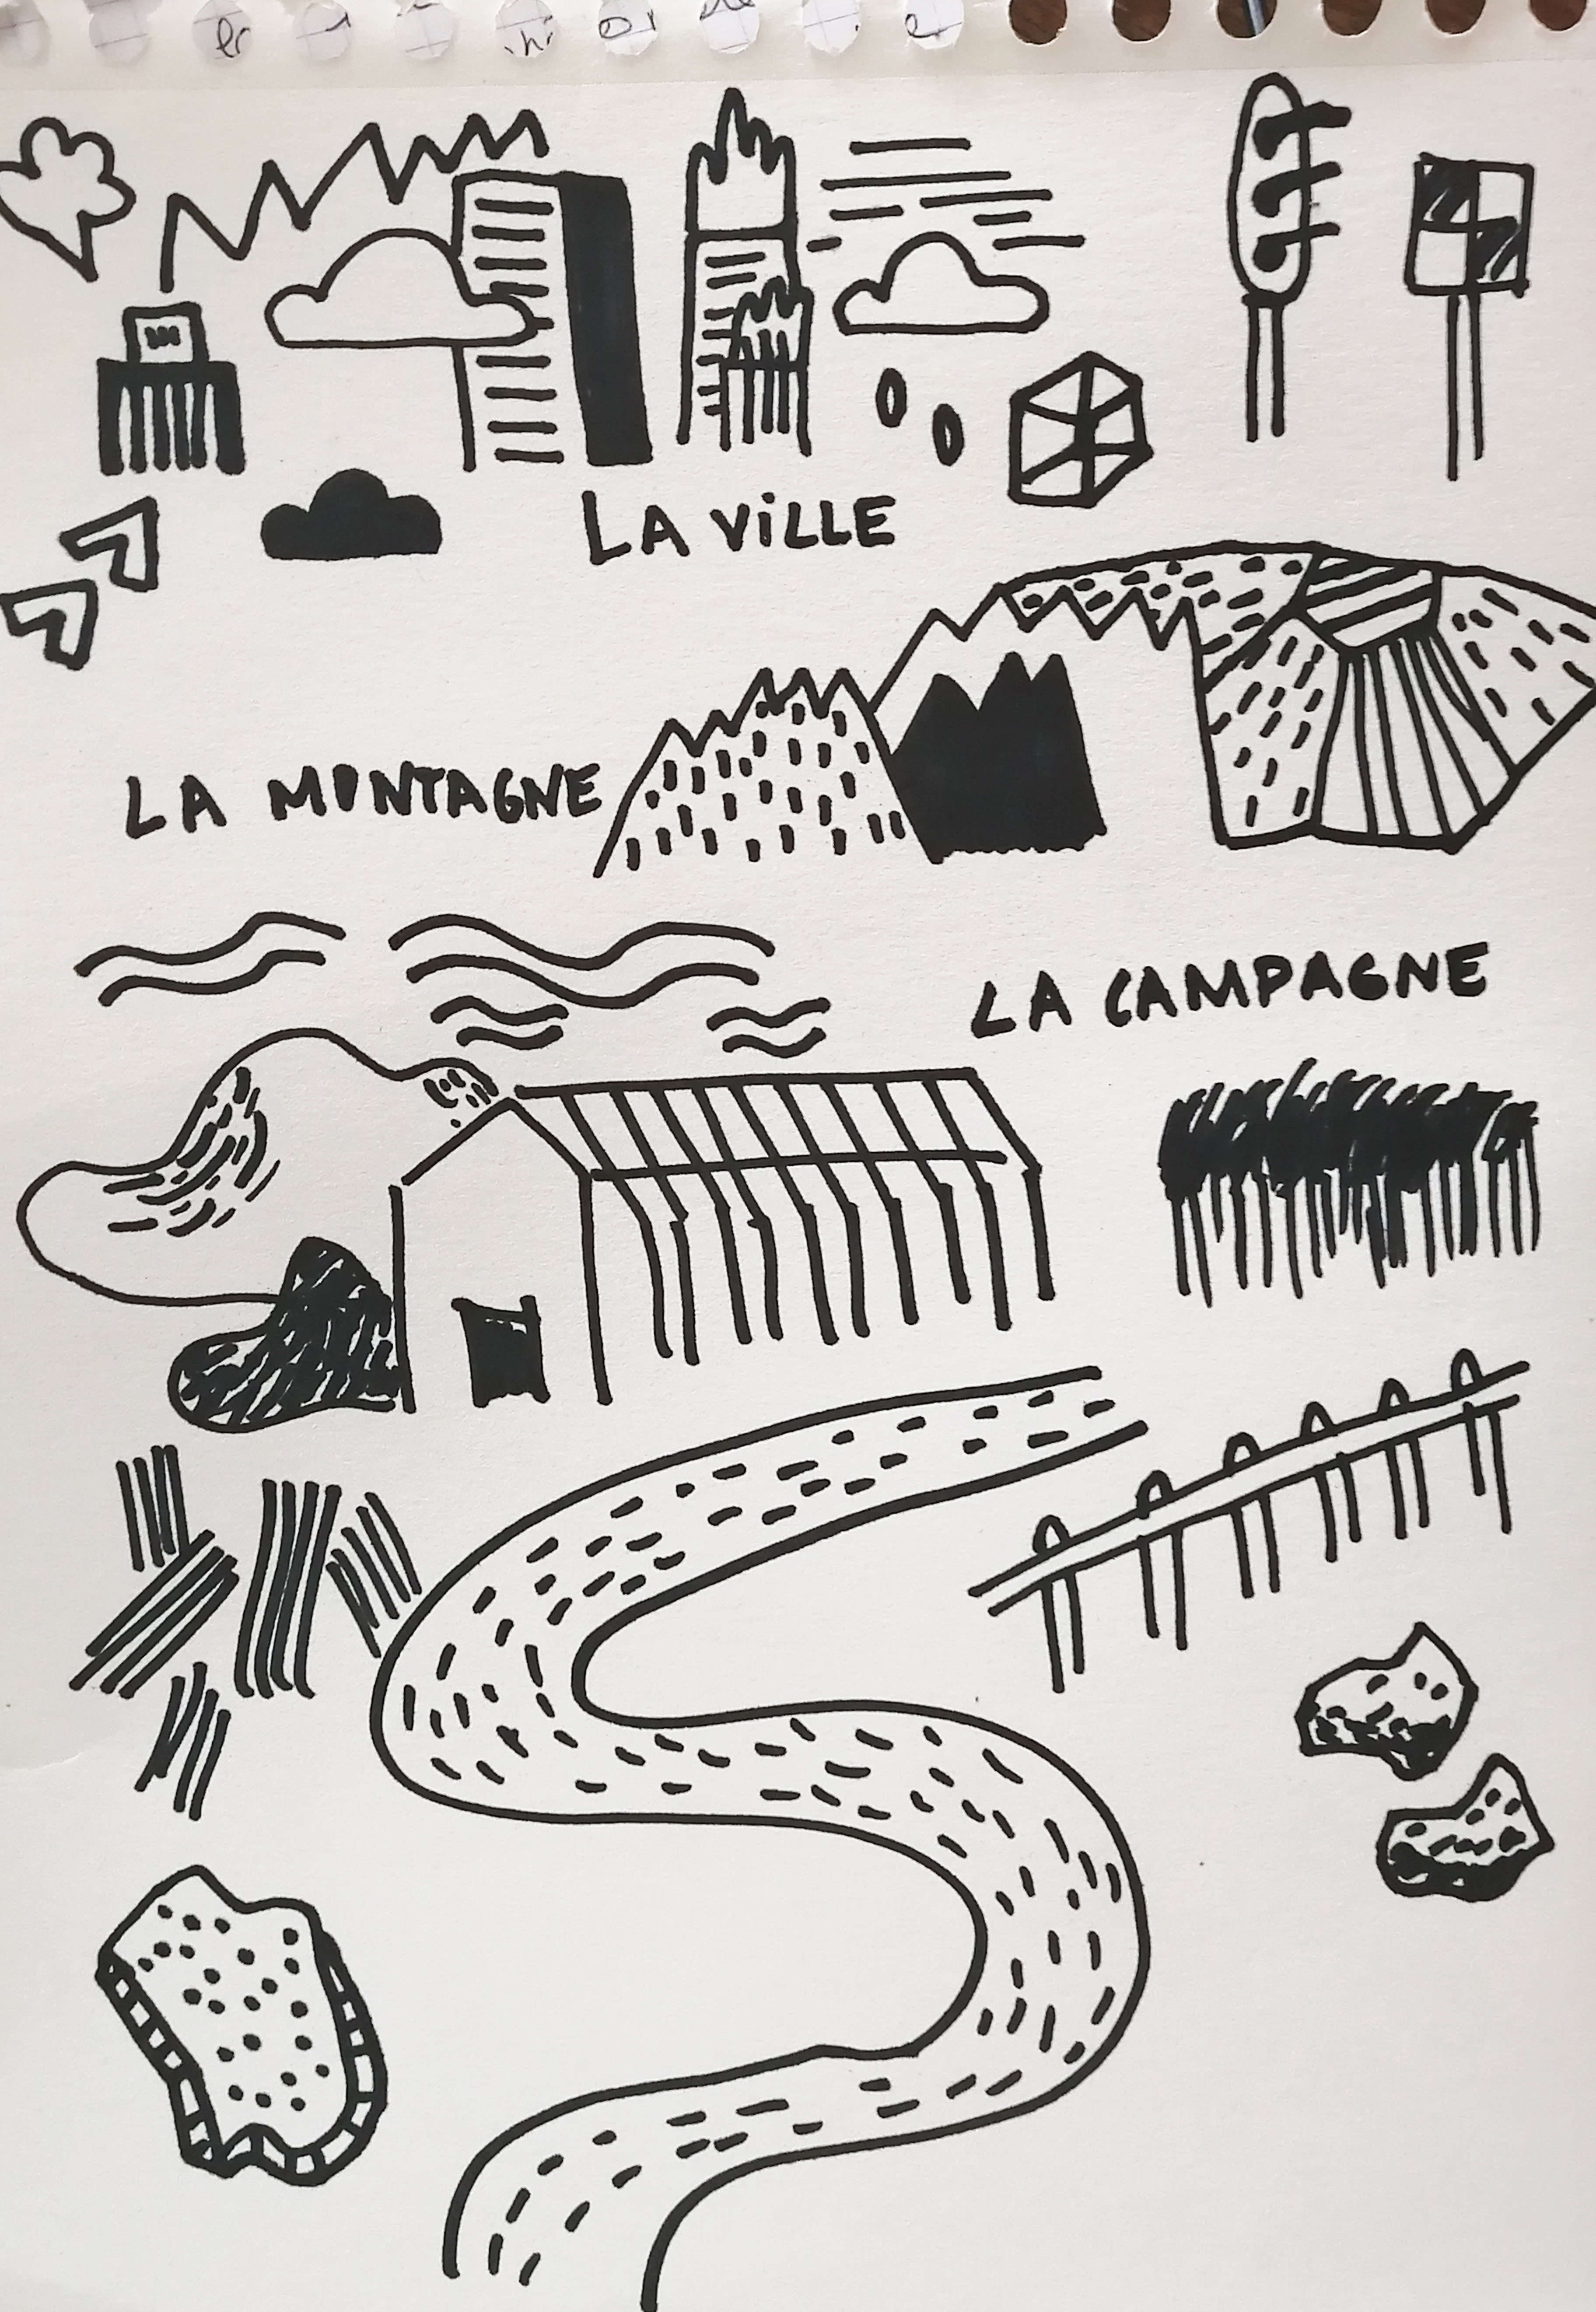 LA ViLLE
LA MONTAGNE
LA CAMPAGNE